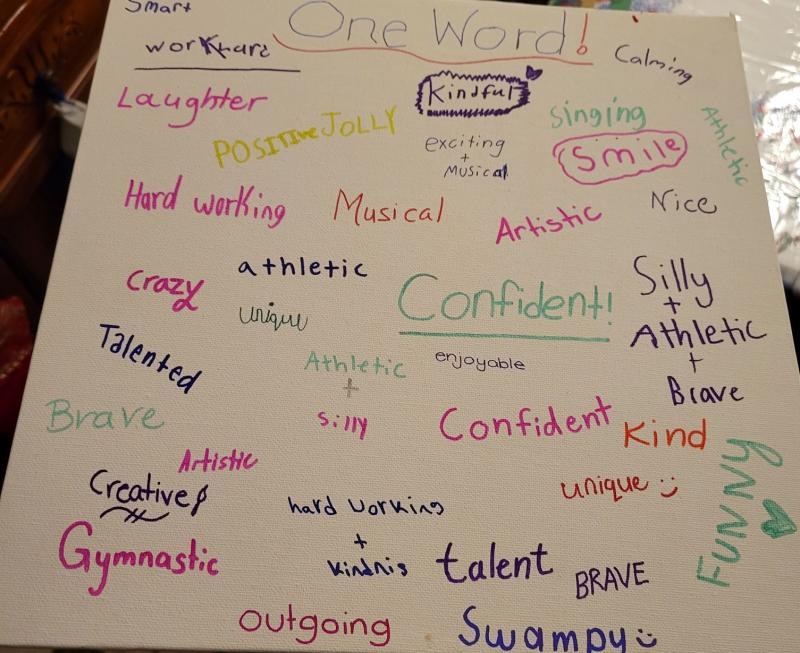 Smart
One Word!
workhard
Calming
Laughter
Kindful
singing
Athletic
POSITIVE JOLLY
exciting
+
Musical
Smile
Hard working
Musical
Artistic
Nice
Crazy
athletic
unique
Confident!
Silly
+
Athletic
+
Brave
Talented
Athletic
+
silly
enjoyable
Brave
Confident
Kind
Artistic
Creative!
unique :)
FUNNY
hard working
+
kindnis
Gymnastic
talent
BRAVE
outgoing
Swampy :)